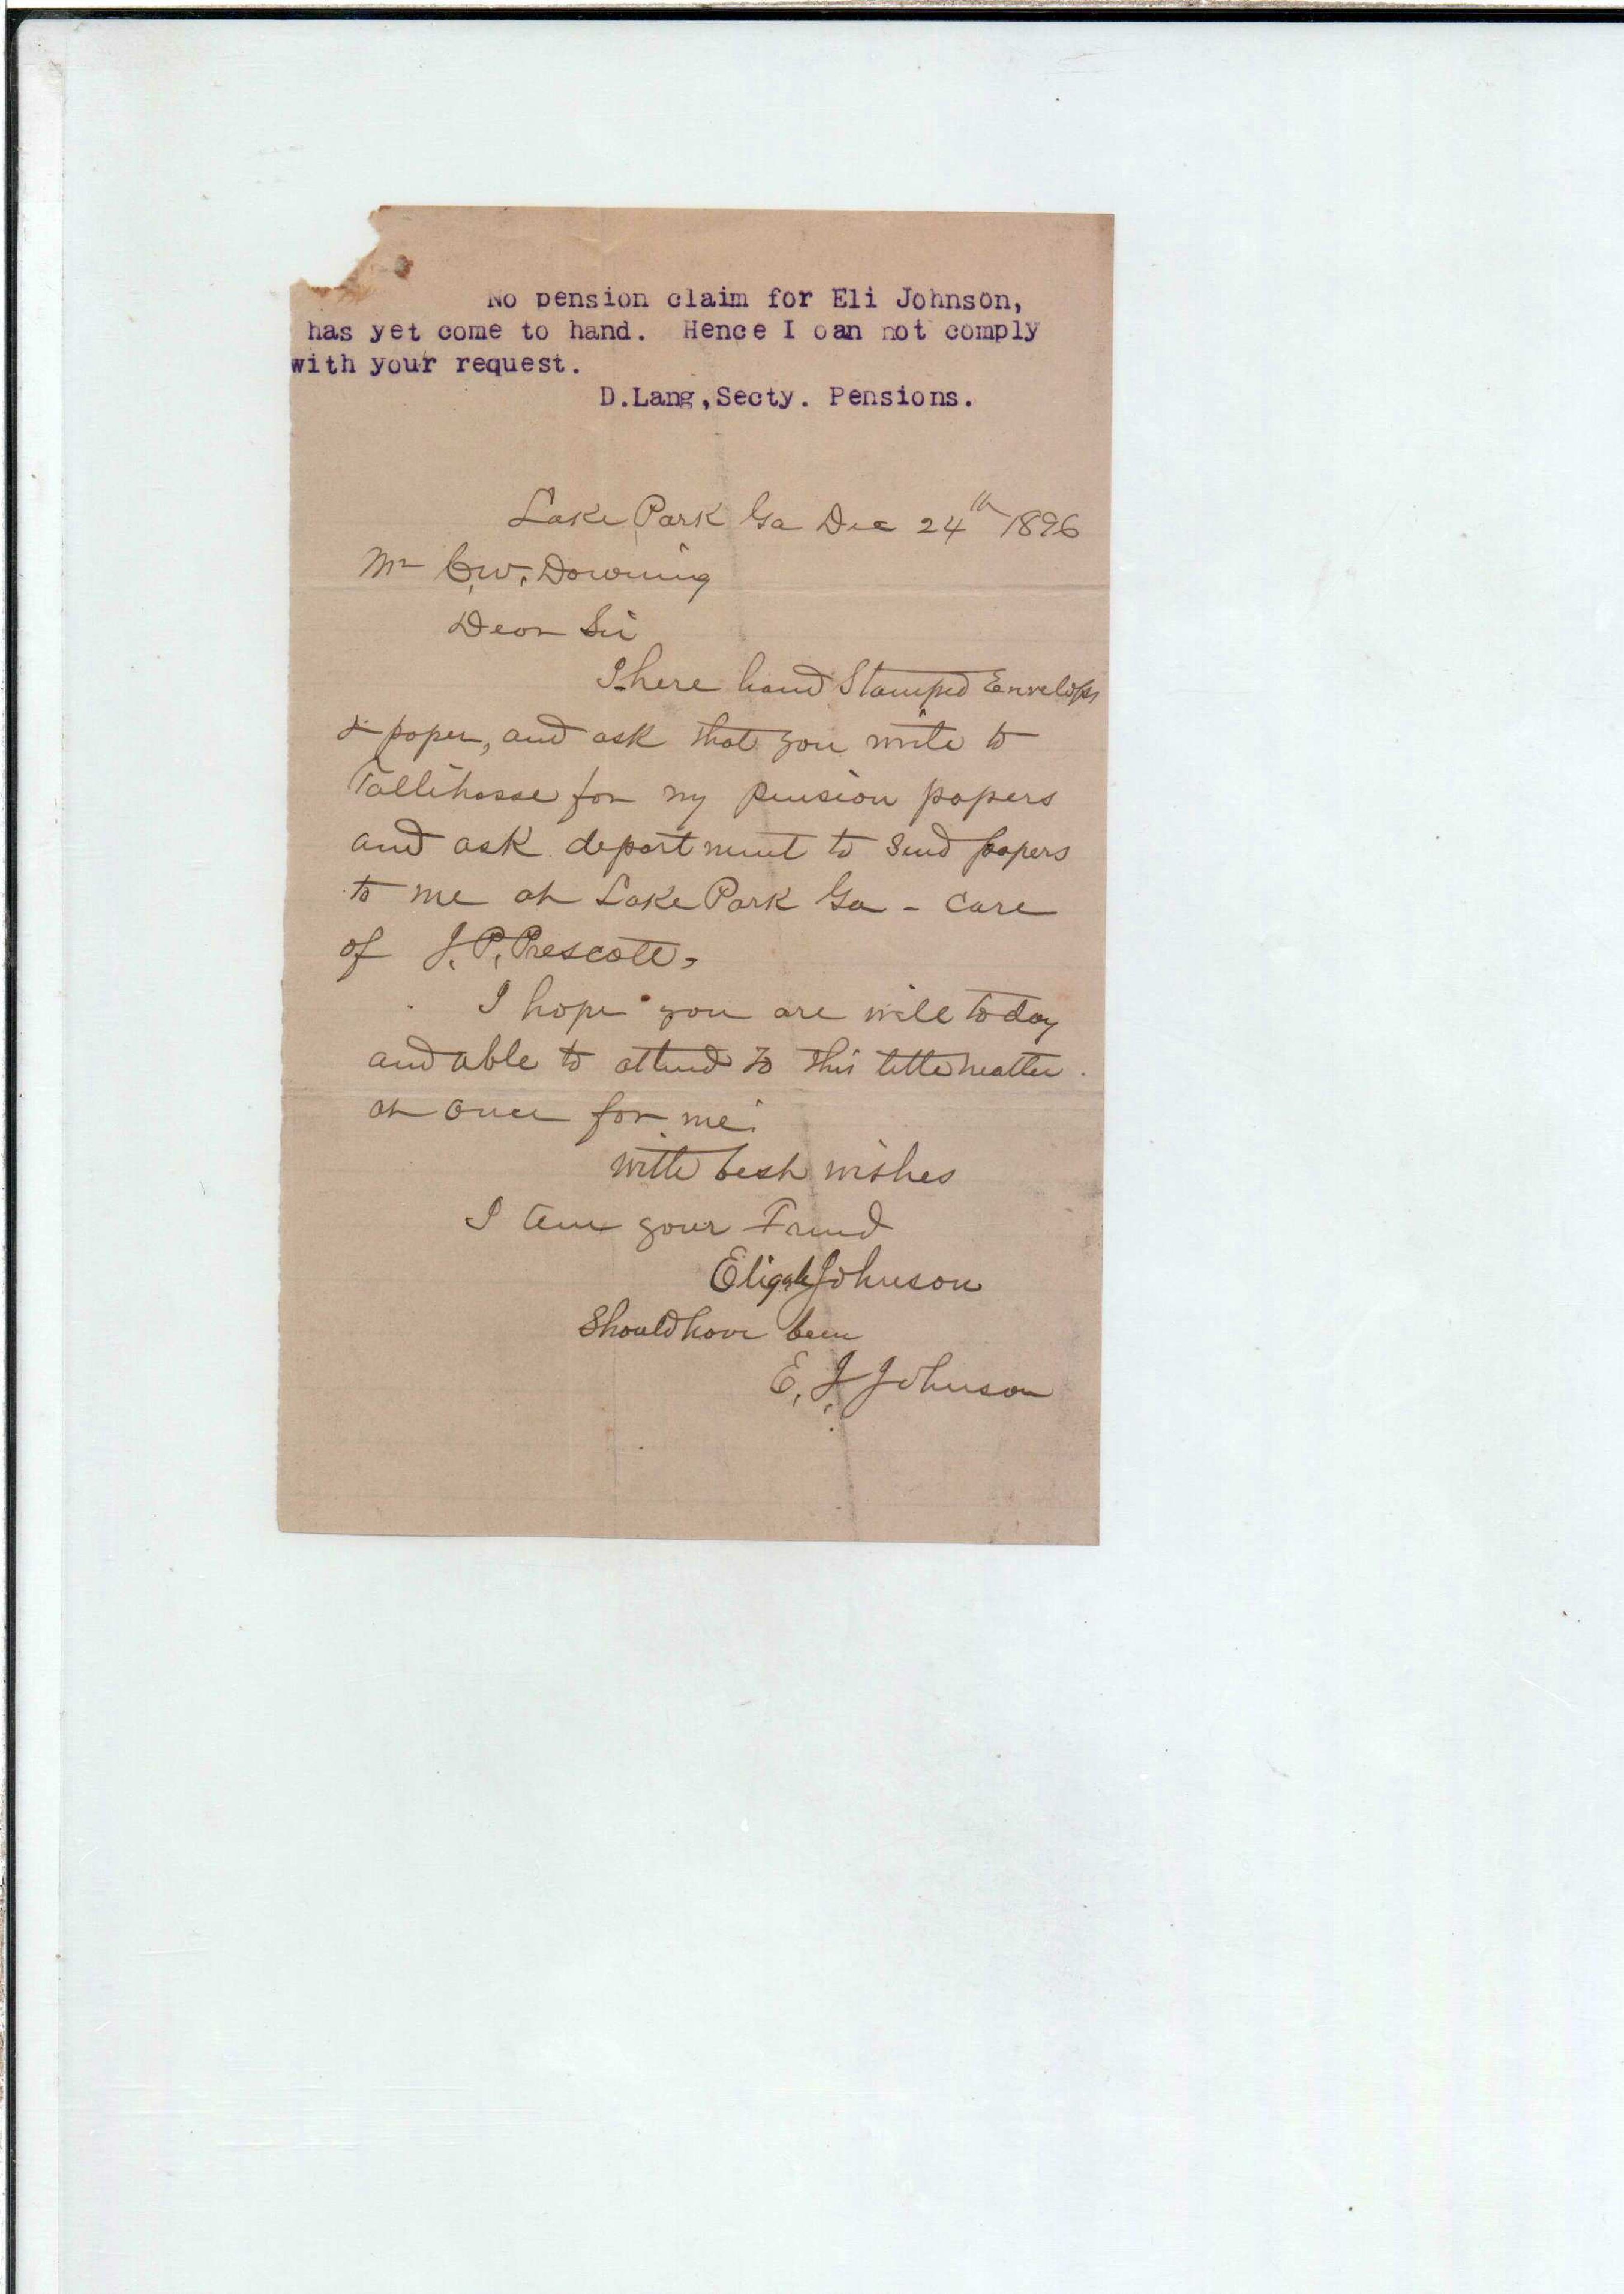 No pension claim for Eli Johnson,
has yet come to hand. Hence I can not comply
with your request.
D.Lang,Secty. Pensions.
Lake Park Ga Dec 24th 1896
Mr C.W. Downing
Dear Sir
I here hand Stamped Envelops
& paper, and ask that you write to
Tallihasse for my pension papers
and ask department to send papers
to me at Lake Park Ga - care
of J. P. Prescott,
I hope you are well today
and able to attend to this little matter
at once for me.
with best wishes
I am your Friend
Eligah Johnson
Should have been
E. J. Johnson